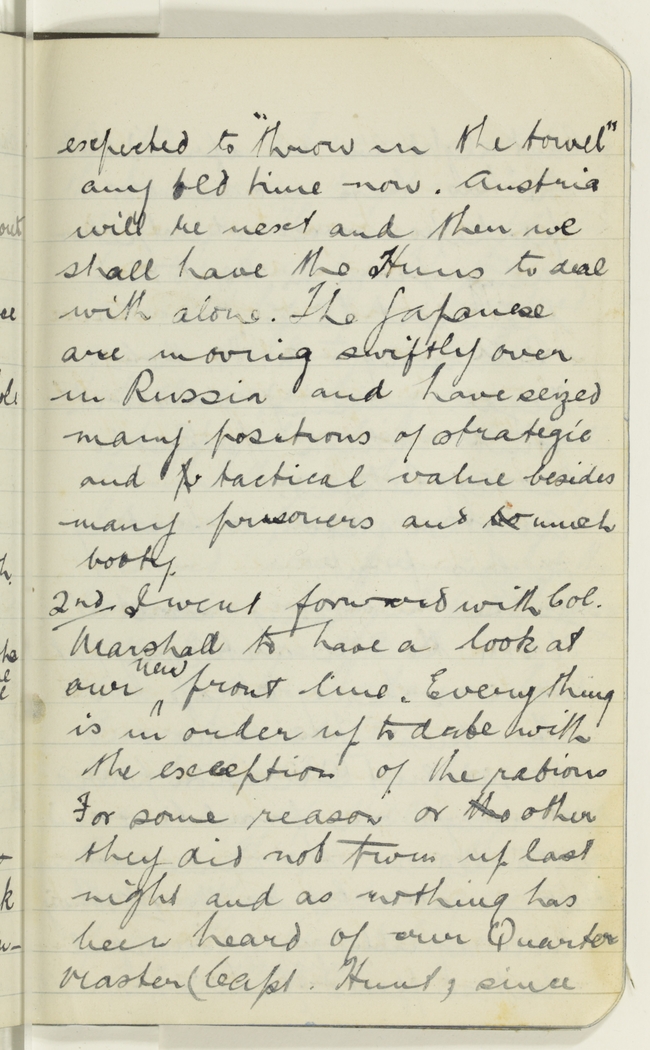 expected to "throw in the towel"
any old time now. Austria
will be next and then we
shall have the Huns to deal
with alone. The Japanese
are moving swiftly over
in Russia and have seized
many positions of strategic
and tactical value besides
many prisoners and much
booty.
2nd. I went forward with Col.
Marshall to have a look at
our new front line. Everything
is in order up to date with
the exception of the rations
For some reason or other
they did not turn up last
night and as nothing has
been heard of our Quarter
Master (Capt. Hunt) since